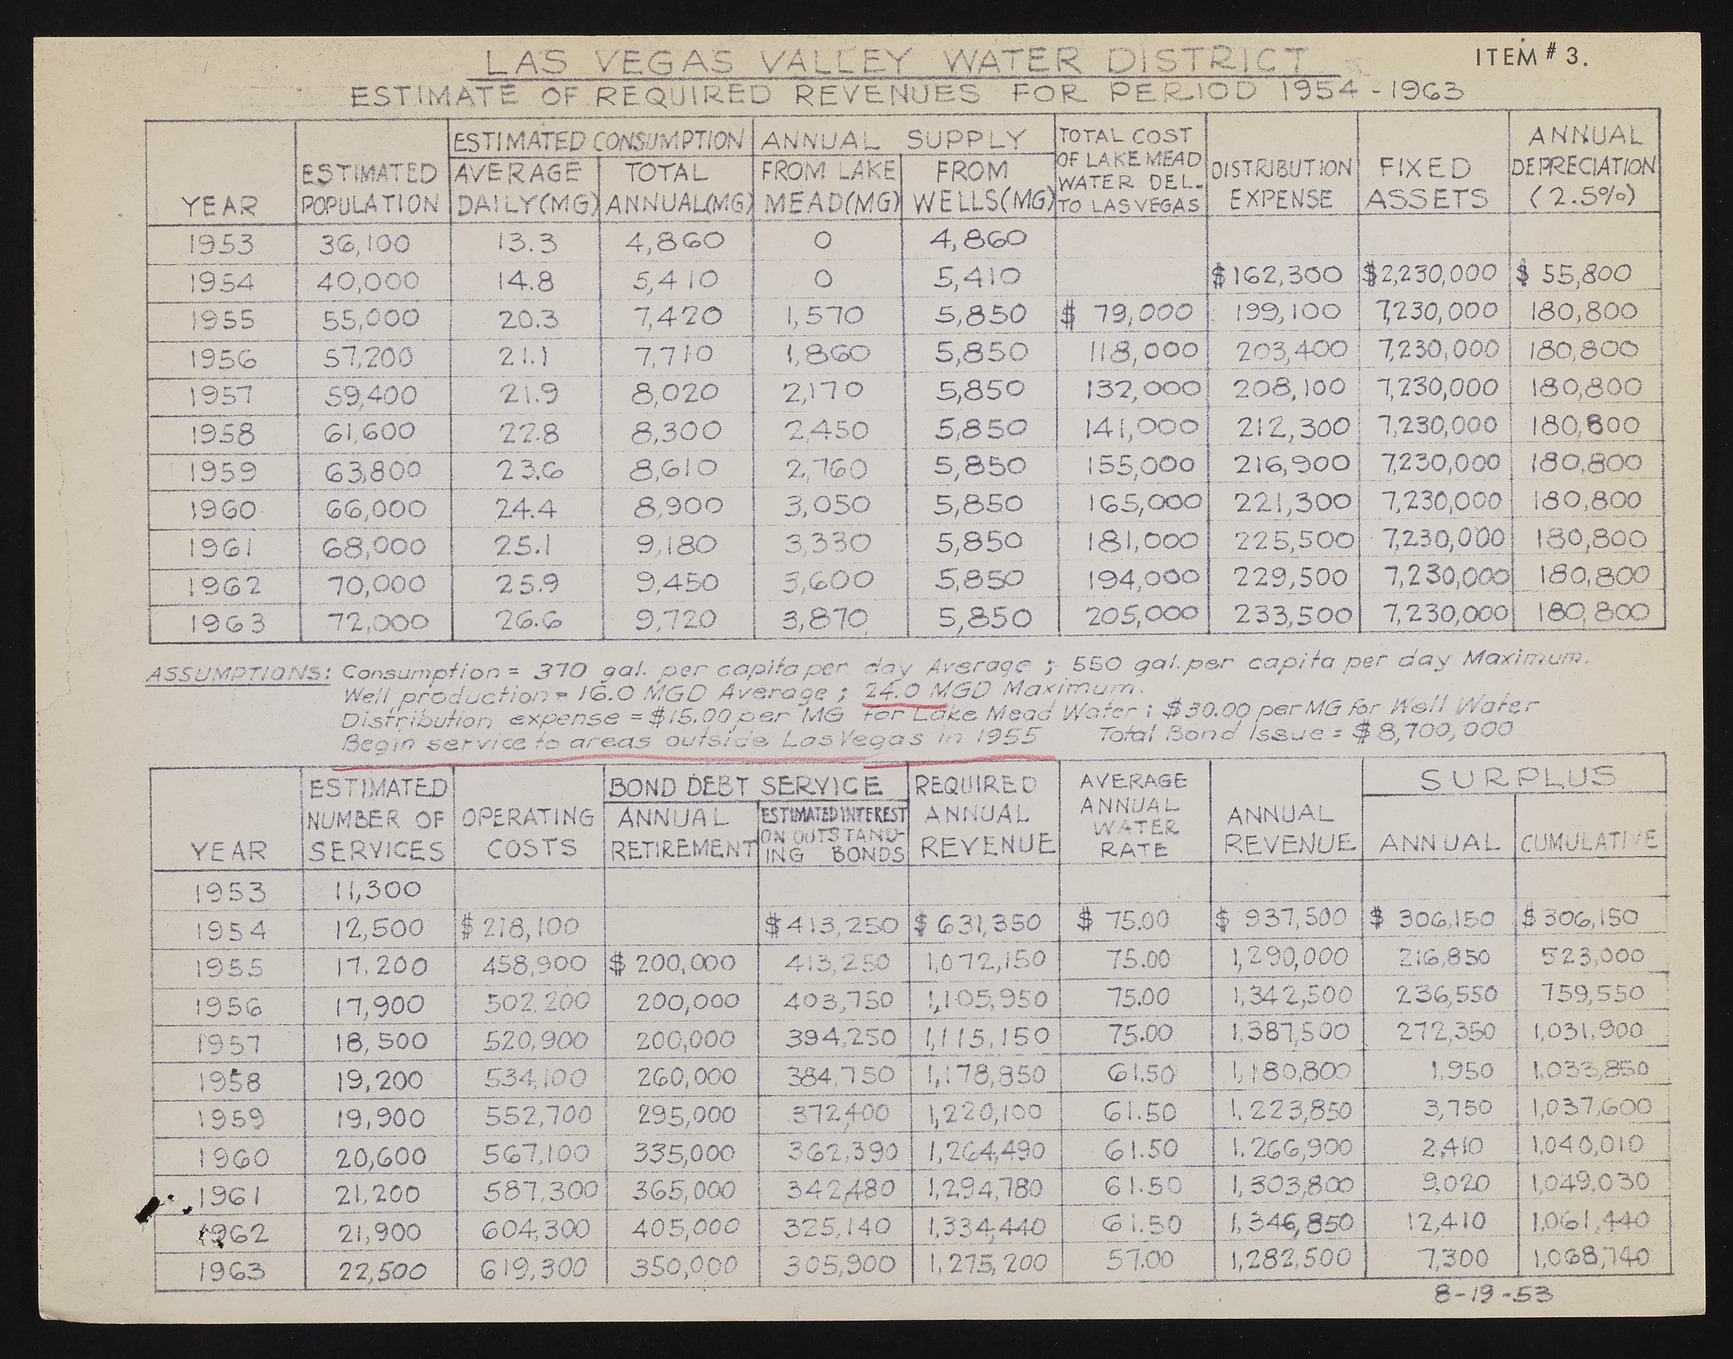 LAS VEGAS VALLEY WATER DISTRICT
ITEM # 3.
ESTIMATE OF REQUIRED REVENUES FOR PERIOD 1954-1963
YEAR | ESTIMATED POPULATION | ESTIMATED CONSUMPTION AVERAGE DAILY(MG) | TOTAL ANNUAL(MG) | ANNUAL SUPPLY FROM LAKE MEAD(MG) | FROM WELLS(MG) | TOTAL COST OF LAKE MEAD WATER DEL. TO LAS VEGAS | DISTRIBUTION EXPENSE | FIXED ASSETS | ANNUAL DEPRECIATION (2.5%)
1953 36,100 13.3 4,860 0 4,860
1954 40,000 14.8 5,410 0 5,410 $162,300 $2,230,000 $ 55,800
1955 55,000 20.3 7,420 1,570 5,850 $ 79,000 199,100 7,230,000 180,800
1956 57,200 21.1 7,710 1,860 5,850 118,000 203,400 7,230,000 180,800
1957 59,400 21.9 8,020 2,170 5,850 132,000 208,100 7,230,000 180,800
1958 61,600 22.8 8,300 2,450 5,850 141,000 212,300 7,230,000 180,800
1959 63,800 23.6 8,610 2,760 5,850 155,000 216,900 7,230,000 180,800
1960 66,000 24.4 8,900 3,050 5,850 165,000 221,300 7,230,000 180,800
1961 68,000 25.1 9,180 3,330 5,850 181,000 225,500 7,230,000 180,800
1962 70,000 25.9 9,450 3,600 5,850 194,000 229,500 7,230,000 180,800
1963 72,000 26.6 9,720 3,870 5,850 205,000 233,500 7,230,000 180,800
ASSUMPTIONS: Consumption = 370 gal. per capita per day Average ; 550 gal. per capita per day Maximum.
Well production = 16.0 MGD Average ; 24.0 MGD Maximum.
Distribution expense = $15.00 per MG for Lake Mead Water ; $30.00 per MG for Well Water
Begin service to areas outside Las Vegas in 1955 Total Bond Issue = $8,700,000
YEAR | ESTIMATED NUMBER OF SERVICES | OPERATING COSTS | BOND DEBT SERVICE ANNUAL RETIREMENT | ESTIMATED INTEREST ON OUTSTANDING BONDS | REQUIRED ANNUAL REVENUE | AVERAGE ANNUAL WATER RATE | ANNUAL REVENUE | SURPLUS ANNUAL | CUMULATIVE
1953 11,300
1954 12,500 $218,100 $413,250 $631,350 $ 75.00 $ 937,500 $ 306,150 $306,150
1955 17,200 458,900 $200,000 413,250 1,072,150 75.00 1,290,000 216,850 523,000
1956 17,900 502,200 200,000 403,750 1,105,950 75.00 1,342,500 236,550 759,550
1957 18,500 520,900 200,000 394,250 1,115,150 75.00 1,387,500 272,350 1,031,900
1958 19,200 534,100 260,000 384,750 1,178,850 61.50 1,180,800 1,950 1,033,850
1959 19,900 552,700 295,000 372,400 1,220,100 61.50 1,223,850 3,750 1,037,600
1960 20,600 567,100 335,000 362,390 1,264,490 61.50 1,266,900 2,410 1,040,010
1961 21,200 587,300 365,000 342,480 1,294,780 61.50 1,303,800 9,020 1,049,030
1962 21,900 604,300 405,000 325,140 1,334,440 61.50 1,346,850 12,410 1,061,440
1963 22,500 619,300 350,000 305,900 1,275,200 57.00 1,282,500 7,300 1,068,740
8-19-53